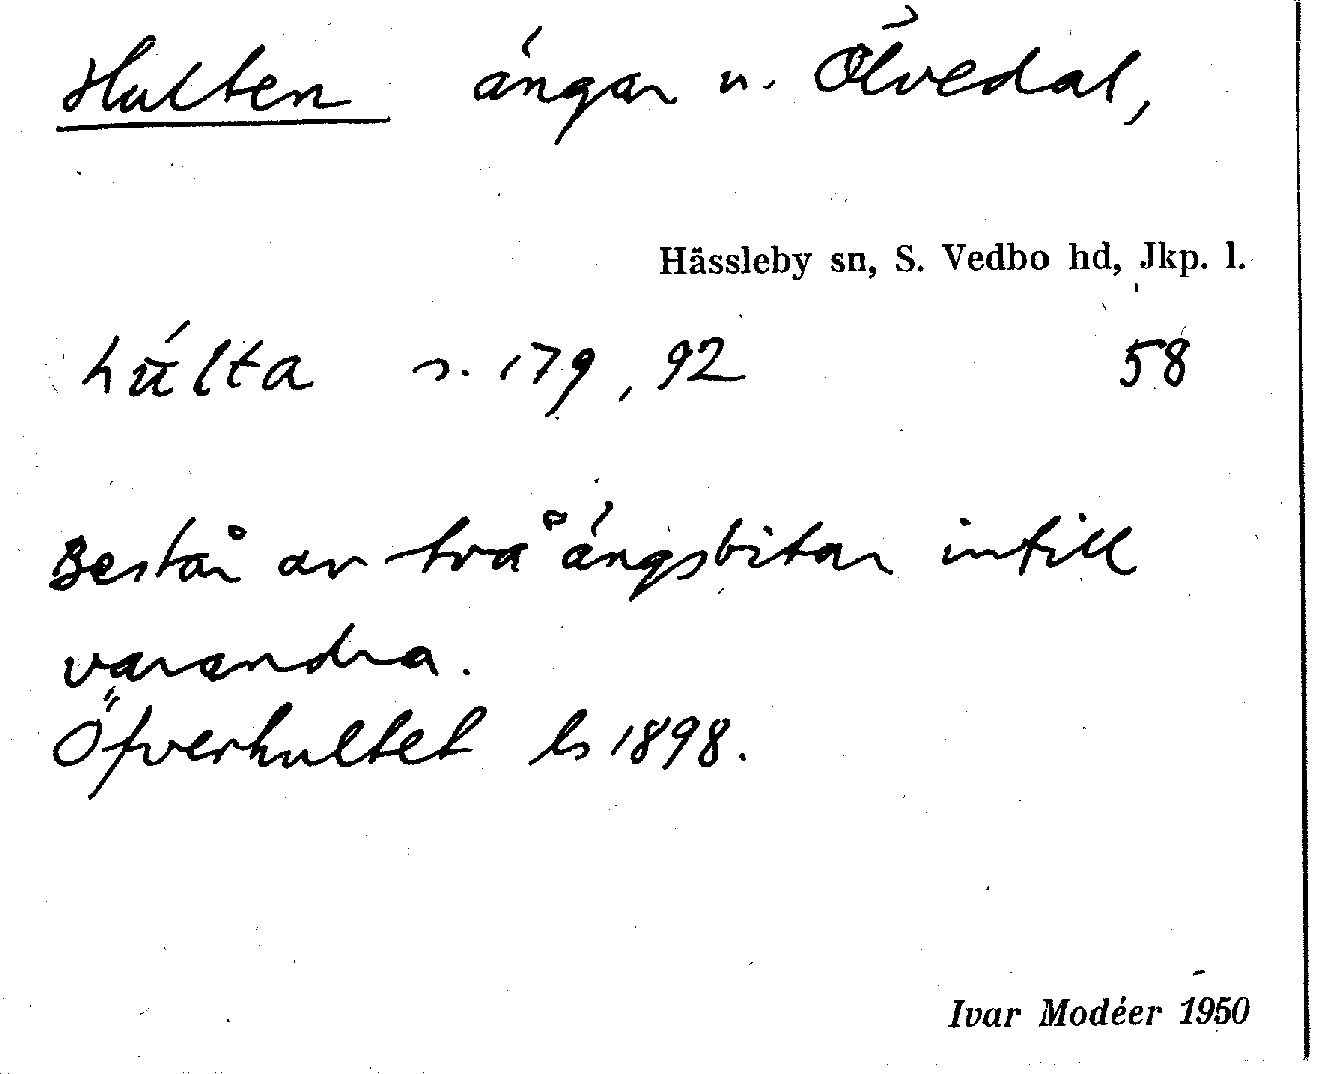 Hulten ängar u. Ölvedal,
Hässleby sn, S. Vedbo hd, Jkp. l.
húlta s. 179, 92 58
Består av två ängsbitar intill
varandra.
Öfverhultet ls 1898.
Ivar Modéer 1950